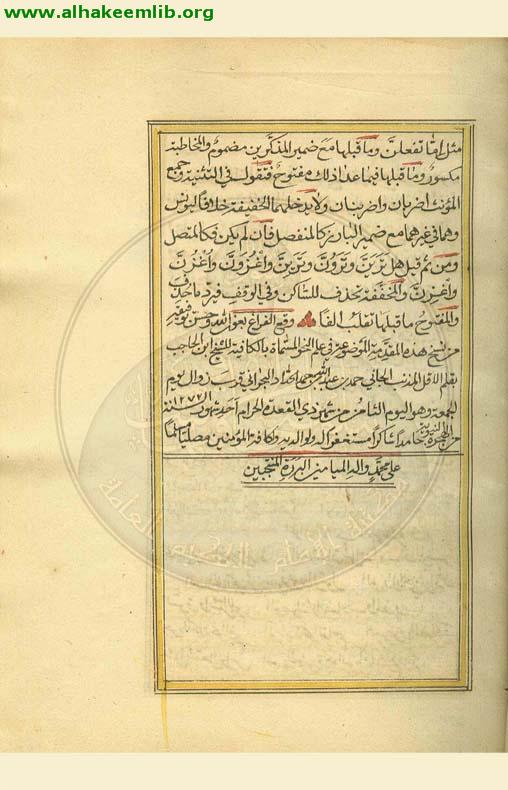 www.alhakeemlib.org
مثل اما تفعلن وما قبلها مع ضمير المذكرين مضموم والمخاطبة
مكسور وما قبلها فيما عدا ذلك مفتوح فتقول في التثنية وجمع
المؤنث اضربان واضربنان ولا يدخلهما الخفيفة خلافا ليونس
وهما في غيرهما مع ضمير البارز كالمنفصل فان لم يكن فكالمتصل
ومن ثم قيل هل ترين وترون وترين واغزون واغزن
واغزن والمخففة تحذف للساكن وفي الوقف فيرد ما حذف
والمفتوح ما قبلها تقلب الفا وقع الفراغ بعون الله وحسن توفيقه
من نسخ هذه المقدمة الموضوعة في علم النحو المسماة بالكافية للشيخ ابن الحاجب
بقلم الاقل المذنب الجاني حمد بن عبد الله بن محمد البحراني قرب زوال يوم
الجمعة وهو اليوم الثامن من شهر ذي القعدة الحرام احد شهور سنة ١٢٧٧
من الهجرة النبوية حامدا شاكرا مستغفرا له ولوالديه وكافة المؤمنين مصليا مسلما
على محمد واله الميامين البررة المنتجبين